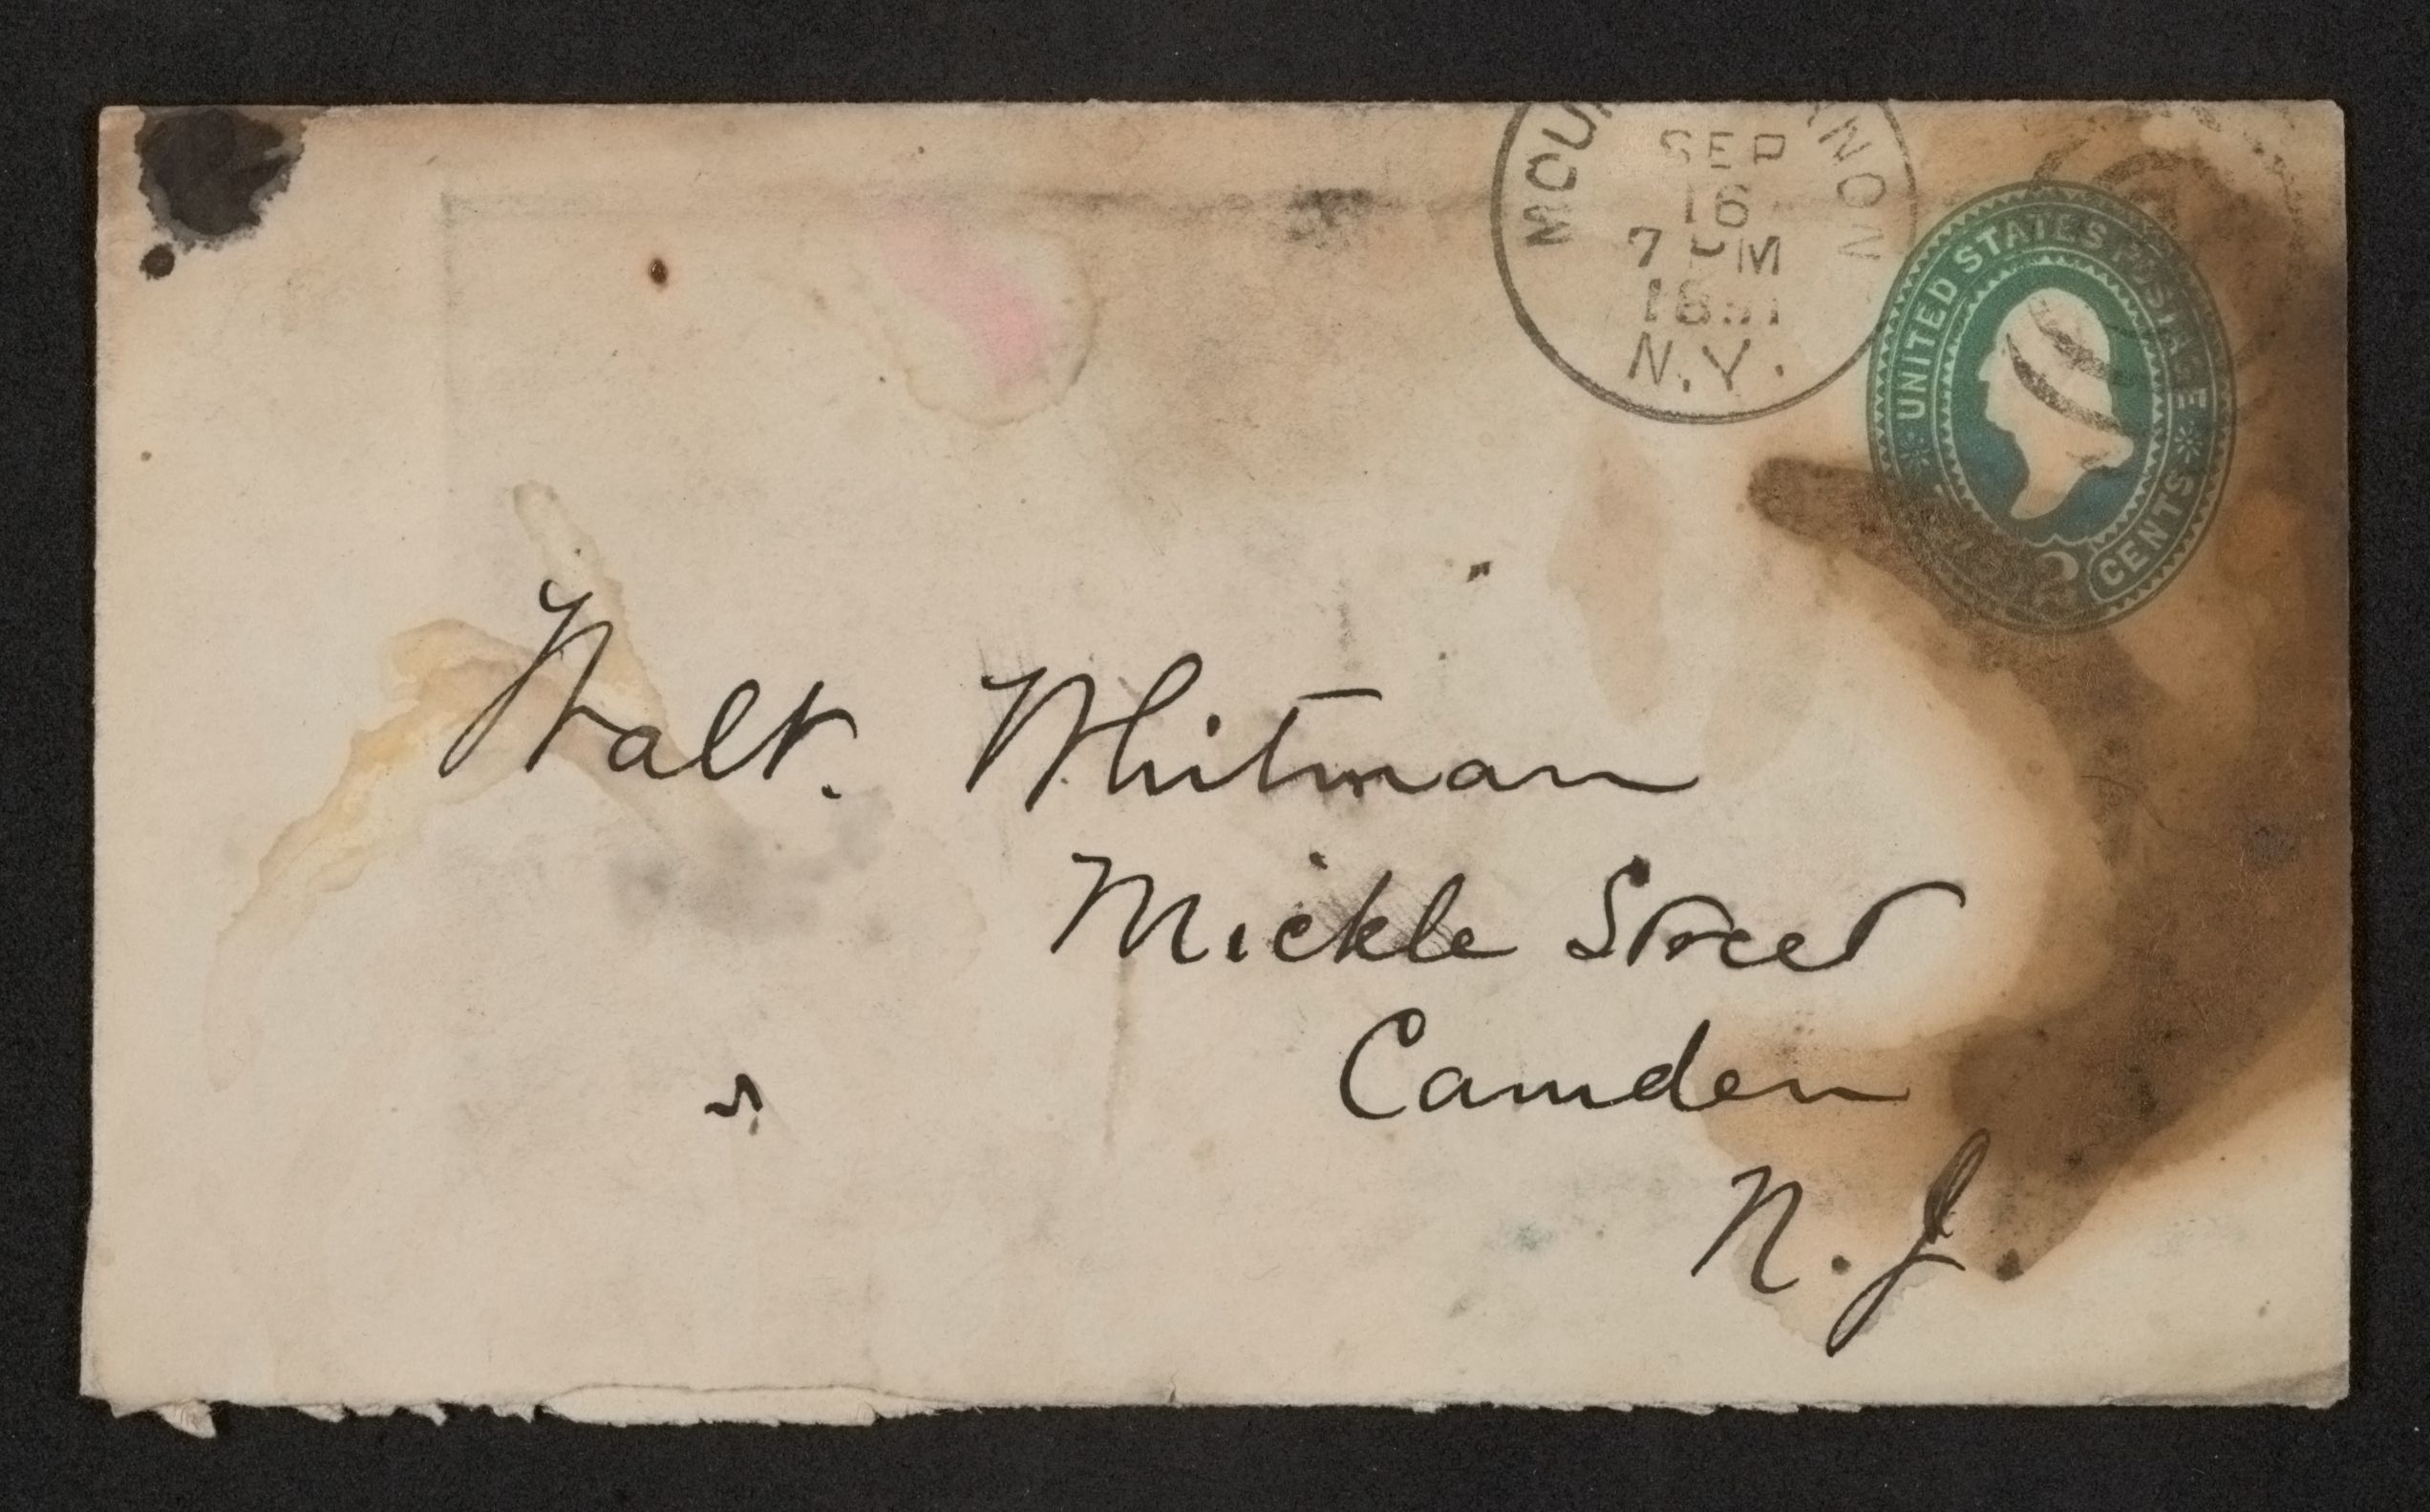 SEP
16
7 PM
N.Y.
UNITED STATES POSTAGE
CENTS
Walt. Whitman
Mickle Street
Camden
N. J.